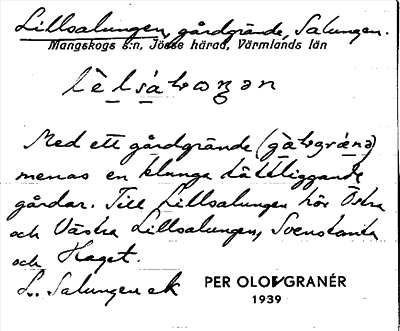 Lillsalungen, gårdgrände, Salungen.
Mangskogs s:n, Jösse härad, Värmlands län
Med ett gårdgrände
menas en klunga tättliggande
gårdar. Till Lillsalungen hör Östra
och Västra Lillsalungen, Svenstanta
och Haget.
L. Salungen ek
PER OLOV GRANÉR
1939